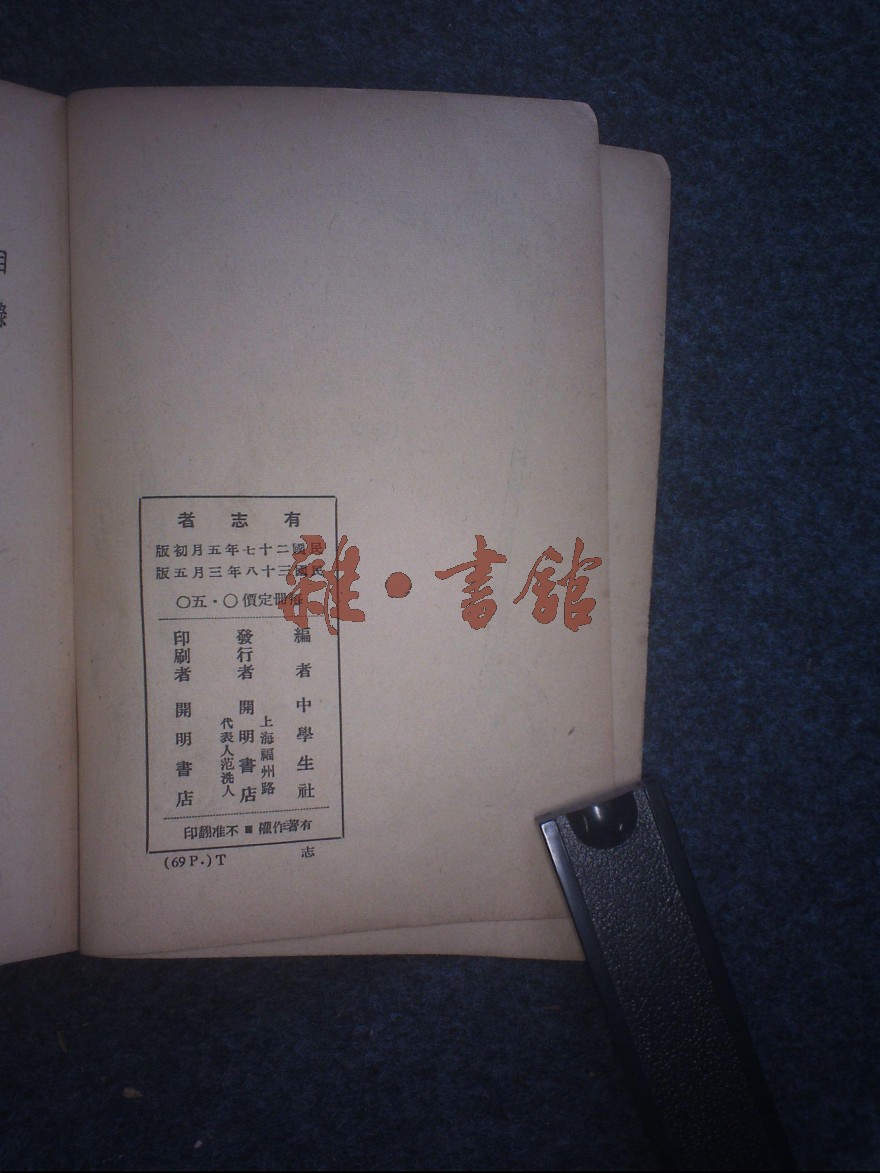 目錄
有志者
民國二十七年五月初版
民國三十八年三月五版
每冊定價〇·五〇
編者 中學生社
發行者 開明書店
上海福州路
代表人范洗人
印刷者 開明書店
有著作權■不准翻印
(69 P.) T 志
雜·書館